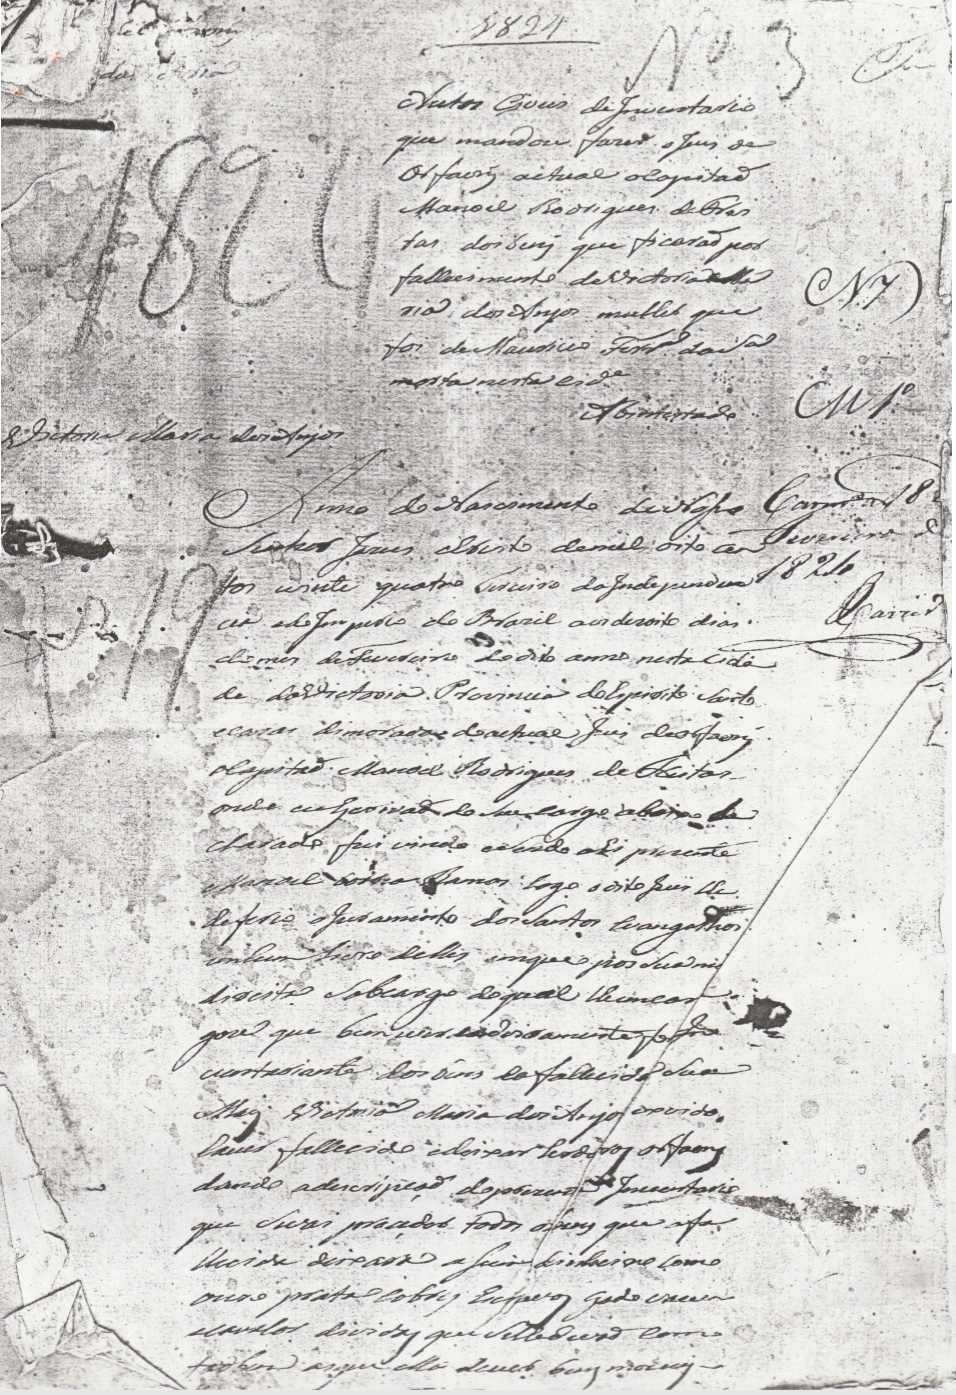 1824
No 3
Autos Civeis de Inventario
que mandou fazer o Juis de
Orfaons actual o Capitaõ
Manoel Rodrigues de Frei
tas dos bens que ficaraõ por
fallecimento de Victoria Ma
ria dos Anjos mulher que
foi de Mauricio Ferrª da Sª
morta nesta cidᵉ
Abintestado
1824
N 7
M 1º
Victoria Maria dos Anjos
Anno do Nascimento de Nosso
Senhor Jezus Christo de mil oito cen
tos vinte quatro Terceiro da Independen
cia e do Imperio do Brazil aos dezoito dias
do mes de Fevereiro do dito anno nesta Cida
de da Victoria Provincia do Espirito Santo
e cazas de morada do actual Juis de Orfaons
o Capitaõ Manoel Rodrigues de Freitas
onde eu Escrivaõ do seu cargo abaixo de
clarado fui vindo e sendo ahi prezente
Manoel Ramos logo o dito Juis lhe
deferio o Juramento dos Santos Evangelhos
em hum Livro delles em que pos sua maõ
direita sob cargo do qual lhe encar
gou que bem e verdadeiramente
inventariante dos bens da fallecida sua
Maÿ Victoria Maria dos Anjos
haver fallecido e deixar herdeiros orfaons
dando a descripçaõ do prezente Inventario
que
todos os bens que a fa
llecida deixara a Saber dinheiro como
ouro prata cobres Escravos gado vacum
e cavalos dividas que se lhe deviaõ como
tambem as que ella deveʃse bens moveis
1819
18
Fevereiro
1824